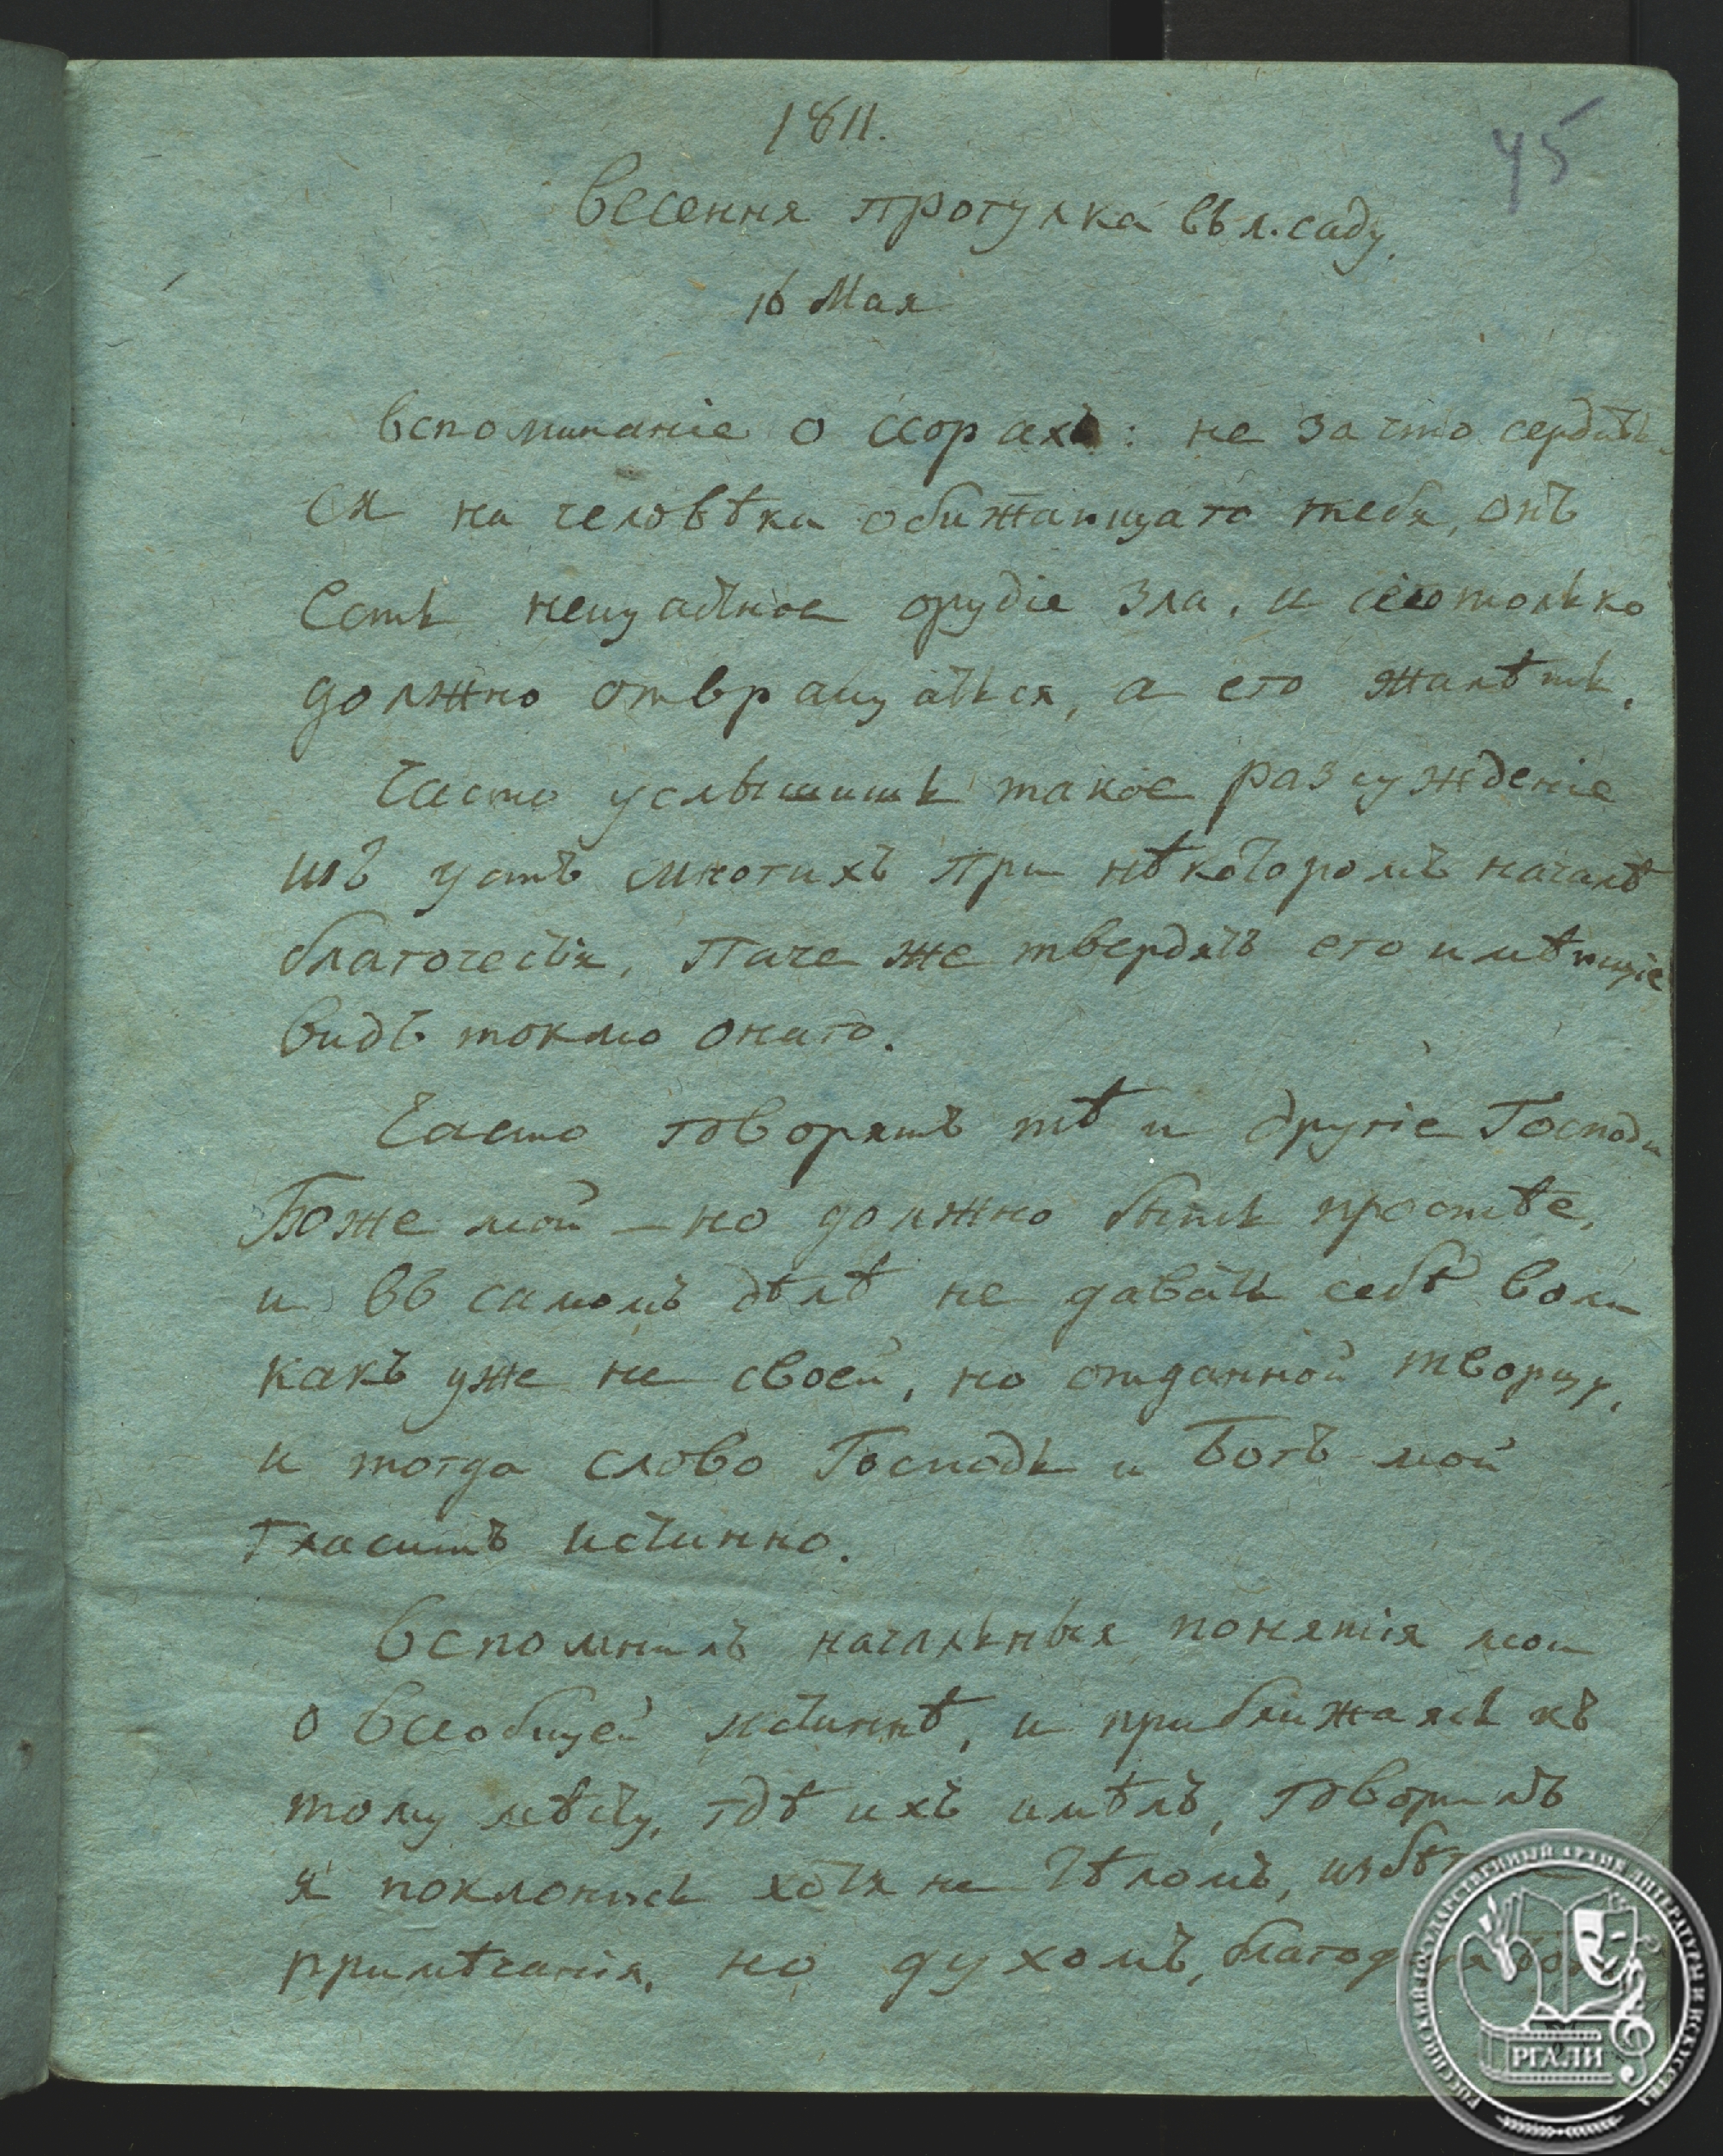 1811.
45
Весення прогулка въ л. саду.
16 Мая
Вспоминаніе о ссорахъ: не за что сердить
ся на человѣка обижающаго тебя, онъ
есть нещастное орудіе зла, и сего только
должно отвращаться, а его жалѣть.
Часто услышишь такое разсужденіе
изъ устъ многихъ при нѣкоторомъ началѣ
благочестія, паче же твердятъ его имѣющіе
видъ токмо онаго.
Часто говорятъ тѣ и другіе Господи
Боже мой – но должно быть простѣе,
и въ самомъ дѣлѣ не давать себѣ воли
какъ уже не своей, но отданной творцу,
и тогда слово Господь и Богъ мой
гласитъ истинно.
Вспомнилъ начальныя понятія мои
о всеобщей истиннѣ, и приближаясь къ
тому мѣсту, гдѣ ихъ имѣлъ, говорилъ
я поклонюсь хотя не тѣломъ,
примѣчанія, но духомъ,
РОССИЙСКИЙ ГОСУДАРСТВЕННЫЙ АРХИВ ЛИТЕРАТУРЫ И ИСКУССТВА
РГАЛИ